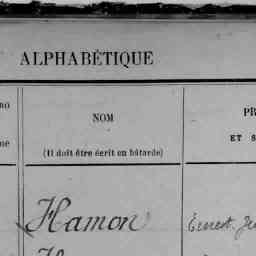 ALPHABÉTIQUE
no
NOM
PR
me
(Il doit être écrit en bâtarde)
ET S
Hamon
Ernest